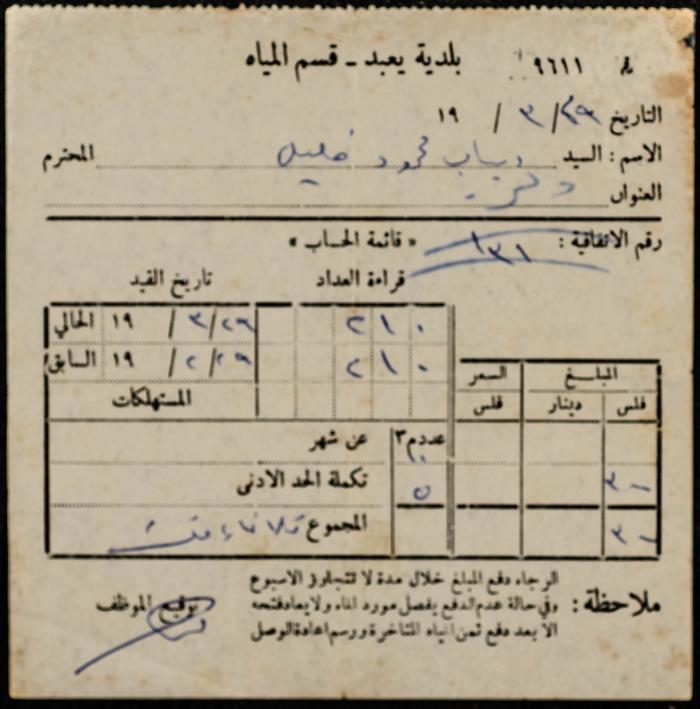 بلدية يعبد - قسم المياه
٩٦١١
التاريخ ٢٩/٣/ ١٩
الاسم : السيد ذياب محمود خليل المحترم
العنوان
رقم الاتفاقية : ١٣١
« قائمة الحساب »
قراءة العداد تاريخ القيد
٢١٠ ٢٩/٣/ ١٩ الحالي
٢١٠ ٢٩/٢/ ١٩ السابق
المستهلكات
المبلغ السعر
فلس دينار فلس
عدد م٣ عن شهر
٣٠٠ ٥ تكملة الحد الادنى
٣٠٠ المجموع ثلاثماية فلس
ملاحظة : الرجاء دفع المبلغ خلال مدة لا تتجاوز الاسبوع
وفي حالة عدم الدفع يفصل مورد الماء ولا يعاد فتحه
الا بعد دفع ثمن المياه المتأخرة ورسم اعادة الوصل
توقيع الموظف